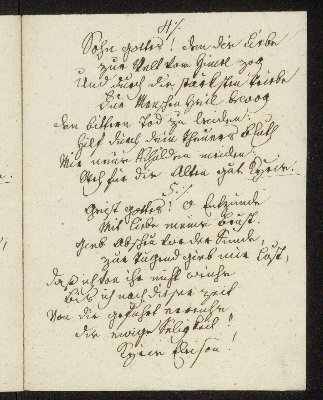 4.
Sohn Gottes! den die Liebe
zur Welt vom Himel zog
Und durch die stärksten Triebe
Zur Menschen Heil bewog
den bittern Tod zu leiden:
Hilf durch dein theures Bluth
Wir neue Schulden meiden
Ach für die Alten gut. Kyrie.
5.
Geist Gottes! O Entzünde
Mit Liebe meine Brust.
gieb Abscheu vor der Sünde,
zur Tugend gieb mir Lust,
daß ich von ihr nicht weiche
bis ich nach dieser Zeit
Von dir geführt erreiche
die ewige Seligkeit!
Kyrie Eleison!